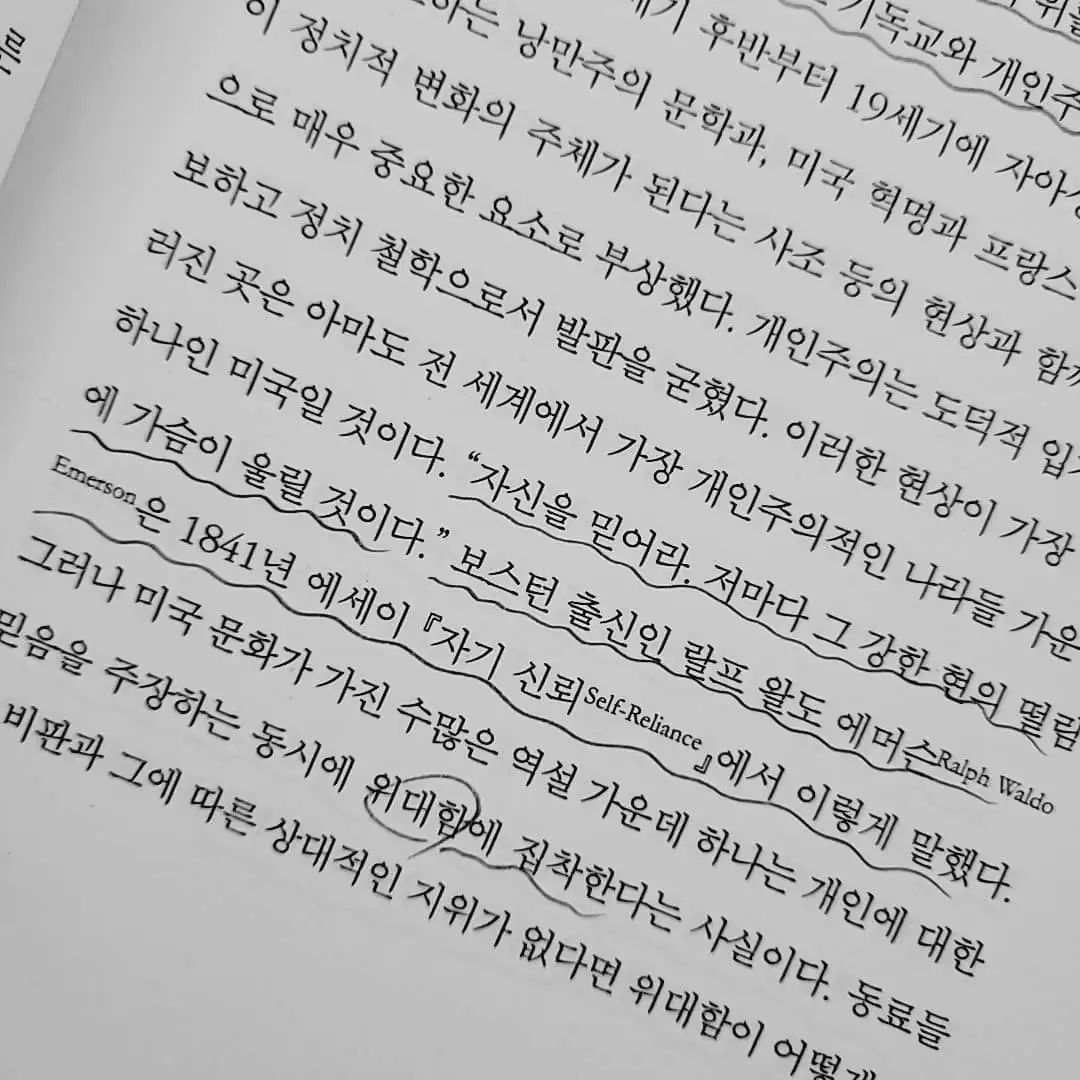 기독교와 개인주
후반부터 19세기에 자아
하는 낭만주의 문학과, 미국 혁명과 프랑스
정치적 변화의 주체가 된다는 사조 등의 현상과 함께
으로 매우 중요한 요소로 부상했다. 개인주의는 도덕적 입
보하고 정치 철학으로서 발판을 굳혔다. 이러한 현상이 가장
러진 곳은 아마도 전 세계에서 가장 개인주의적인 나라들 가운
하나인 미국일 것이다. “자신을 믿어라. 저마다 그 강한 현의 떨림
에 가슴이 울릴 것이다.” 보스턴 출신인 랄프 왈도 에머슨Ralph Waldo
Emerson은 1841년 에세이 『자기 신뢰Self-Reliance』에서 이렇게 말했다.
그러나 미국 문화가 가진 수많은 역설 가운데 하나는 개인에 대한
믿음을 주장하는 동시에 위대함에 집착한다는 사실이다. 동료들
비판과 그에 따른 상대적인 지위가 없다면 위대함이 어떻게